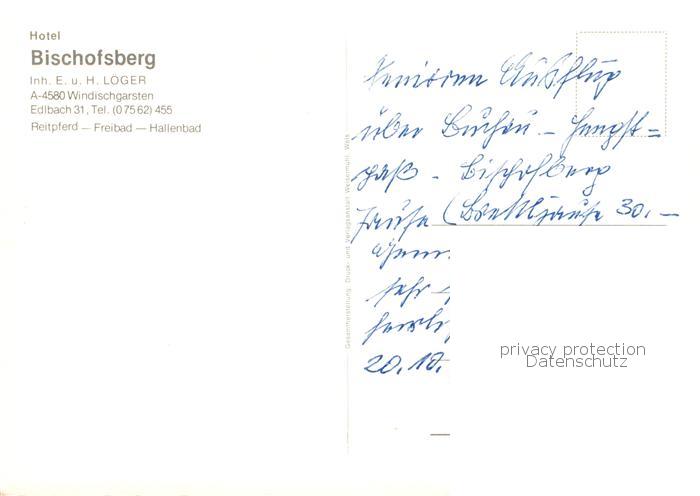 Hotel
Bischofsberg
Inh. E. u. H. LÖGER
A-4580 Windischgarsten
Edlbach 31, Tel. (0 75 62) 455
Reitpferd — Freibad — Hallenbad
Gesamtherstellung: Druck- und Verlagsanstalt Welsermühl, Wels
Senioren Ausflug
über Buchau - Hengst=
paß - Bischofsberg
Jause (Brettljause 30.—
sehr
20.10.
privacy protection
Datenschutz